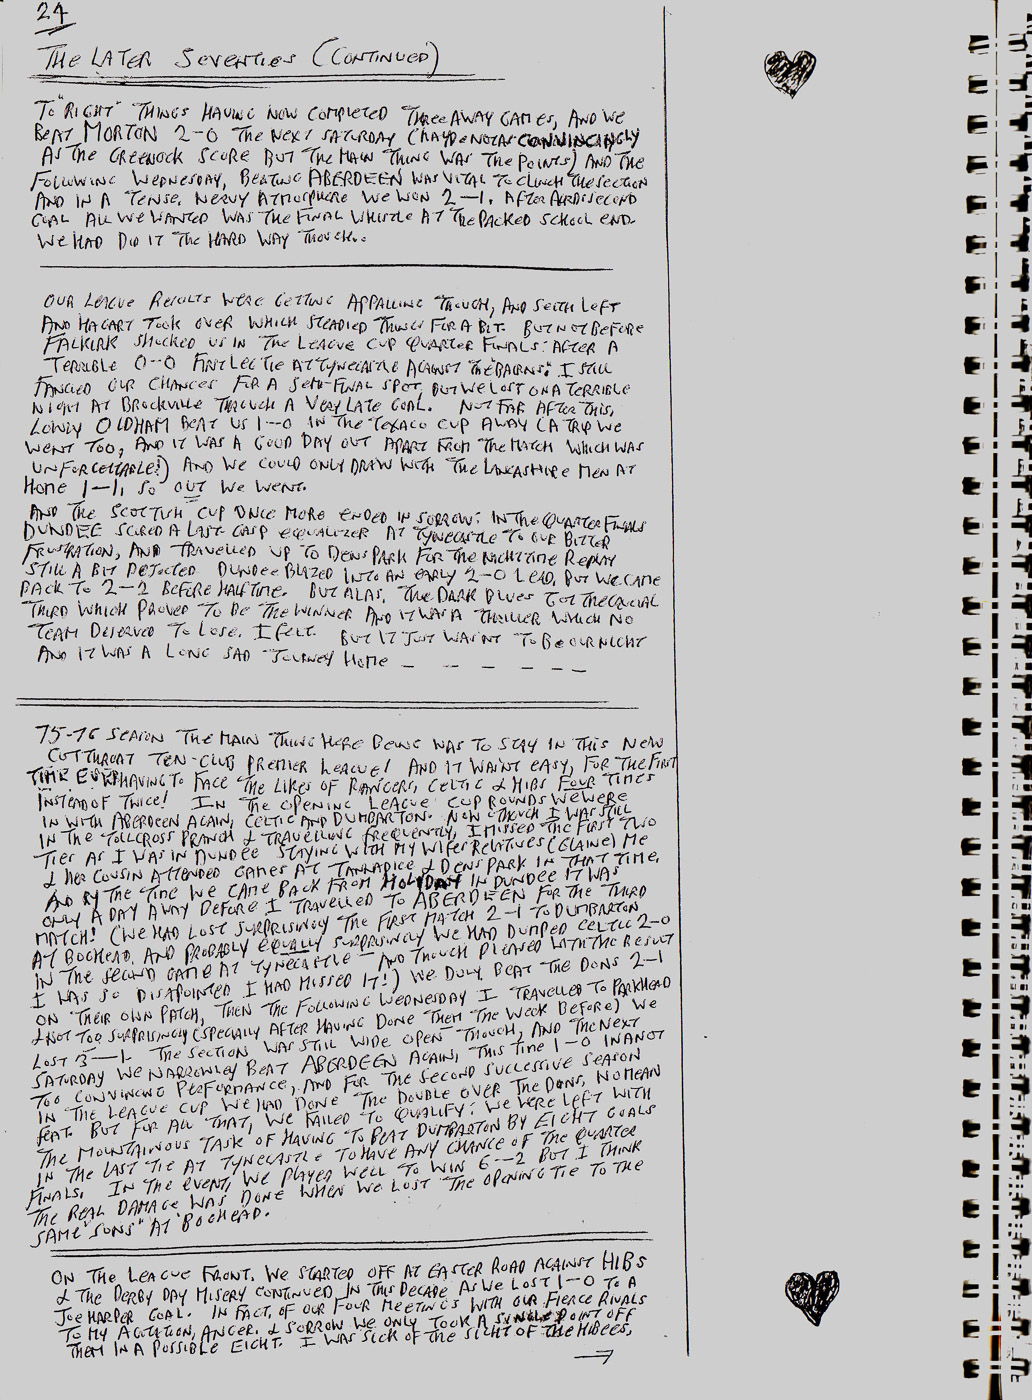 24
THE LATER SEVENTIES (CONTINUED)
TO "RIGHT" THINGS HAVING NOW COMPLETED THREE AWAY GAMES, AND WE
BEAT MORTON 2-0 THE NEXT SATURDAY (MAYBE NOT AS CONVINCINGLY
AS THE GREENOCK SCORE BUT THE MAIN THING WAS THE POINTS) AND THE
FOLLOWING WEDNESDAY, BEATING ABERDEEN WAS VITAL TO CLINCH THE SECTION
AND IN A TENSE, NERVY ATMOSPHERE WE WON 2-1. AFTER SECOND
GOAL ALL WE WANTED WAS THE FINAL WHISTLE AT THE PACKED SCHOOL END.
WE HAD DID IT THE HARD WAY THOUGH..
OUR LEAGUE RESULTS WERE GETTING APPALLING THOUGH, AND SEITH LEFT
AND HAGART TOOK OVER WHICH STEADIED THINGS FOR A BIT. BUT NOT BEFORE
FALKIRK SHOCKED US IN THE LEAGUE CUP QUARTER FINALS: AFTER A
TERRIBLE 0-0 FIRST LEG TIE AT TYNECASTLE AGAINST THE "BAIRNS". I STILL
FANCIED OUR CHANCES FOR A SEMI-FINAL SPOT, BUT WE LOST ON A TERRIBLE
NIGHT AT BROCKVILLE THROUGH A VERY LATE GOAL. NOT FAR AFTER THIS,
LOWLY OLDHAM BEAT US 1-0 IN THE TEXACO CUP AWAY (A TRIP WE
WENT TOO, AND IT WAS A GOOD DAY OUT APART FROM THE MATCH WHICH WAS
UNFORGETTABLE!) AND WE COULD ONLY DRAW WITH THE LANCASHIRE MEN AT
HOME 1-1, SO OUT WE WENT.
AND THE SCOTTISH CUP ONCE MORE ENDED IN SORROW: IN THE QUARTER FINALS
DUNDEE SCORED A LAST-GASP EQUALIZER AT TYNECASTLE TO OUR BITTER
FRUSTRATION, AND TRAVELLED UP TO DENS PARK FOR THE NIGHTTIME REPLAY
STILL A BIT DEJECTED. DUNDEE BLAZED INTO AN EARLY 2-0 LEAD, BUT WE CAME
BACK TO 2-2 BEFORE HALFTIME. BUT ALAS, THE DARK BLUES GOT THE CRUCIAL
THIRD WHICH PROVED TO BE THE WINNER AND IT WAS A THRILLER WHICH NO
TEAM DESERVED TO LOSE, I FELT. BUT IT JUST WASN'T TO BE OUR NIGHT
AND IT WAS A LONG SAD JOURNEY HOME - - - - - -
75-76 SEASON THE MAIN THING HERE BEING WAS TO STAY IN THIS NEW
CUTTHROAT TEN-CLUB PREMIER LEAGUE! AND IT WASN'T EASY, FOR THE FIRST
TIME EVER HAVING TO FACE THE LIKES OF RANGERS, CELTIC & HIBS FOUR TIMES
INSTEAD OF TWICE! IN THE OPENING LEAGUE CUP ROUNDS WE WERE
IN WITH ABERDEEN AGAIN, CELTIC AND DUMBARTON. NOW THOUGH I WAS STILL
IN THE TOLLCROSS BRANCH & TRAVELLING FREQUENTLY, I MISSED THE FIRST TWO
TIES AS I WAS IN DUNDEE STAYING WITH MY WIFES RELATIVES (ELAINE) ME
& HER COUSIN ATTENDED GAMES AT TANNADICE & DENS PARK IN THAT TIME,
AND BY THE TIME WE CAME BACK FROM HOLIDAY IN DUNDEE IT WAS
ONLY A DAY AWAY BEFORE I TRAVELLED TO ABERDEEN FOR THE THIRD
MATCH! (WE HAD LOST SURPRISINGLY THE FIRST MATCH 2-1 TO DUMBARTON
AT BOGHEAD, AND PROBABLY EQUALLY SURPRISINGLY WE HAD DUMPED CELTIC 2-0
IN THE SECOND GAME AT TYNECASTLE - AND THOUGH PLEASED WITH THE RESULT
I WAS SO DISAPOINTED I HAD MISSED IT!) WE DULY BEAT THE DONS 2-1
ON THEIR OWN PATCH, THEN THE FOLLOWING WEDNESDAY I TRAVELLED TO PARKHEAD
& NOT TOO SURPRISINGLY (ESPECIALLY AFTER HAVING DONE THEM THE WEEK BEFORE) WE
LOST 3-1. THE SECTION WAS STILL WIDE OPEN THOUGH, AND THE NEXT
SATURDAY WE NARROWLEY BEAT ABERDEEN AGAIN, THIS TIME 1-0 IN A NOT
TOO CONVINCING PERFORMANCE, AND FOR THE SECOND SUCCESSIVE SEASON
IN THE LEAGUE CUP WE HAD DONE THE DOUBLE OVER THE DONS, NO MEAN
FEAT. BUT FOR ALL THAT, WE FAILED TO QUALIFY: WE WERE LEFT WITH
THE MOUNTAINOUS TASK OF HAVING TO BEAT DUMBARTON BY EIGHT GOALS
IN THE LAST TIE AT TYNECASTLE TO HAVE ANY CHANCE OF THE QUARTER
FINALS. IN THE EVENT, WE PLAYED WELL TO WIN 6-2 BUT I THINK
THE REAL DAMAGE WAS DONE WHEN WE LOST THE OPENING TIE TO THE
SAME "SONS" AT BOGHEAD.
ON THE LEAGUE FRONT, WE STARTED OFF AT EASTER ROAD AGAINST HIBS
& THE DERBY DAY MISERY CONTINUED IN THIS DECADE AS WE LOST 1-0 TO A
JOE HARPER GOAL. IN FACT, OF OUR FOUR MEETINGS WITH OUR FIERCE RIVALS
TO MY AGITATION, ANGER, & SORROW WE ONLY TOOK A SINGLE POINT OFF
THEM IN A POSSIBLE EIGHT. I WAS SICK OF THE SIGHT OF THE HIBEES,